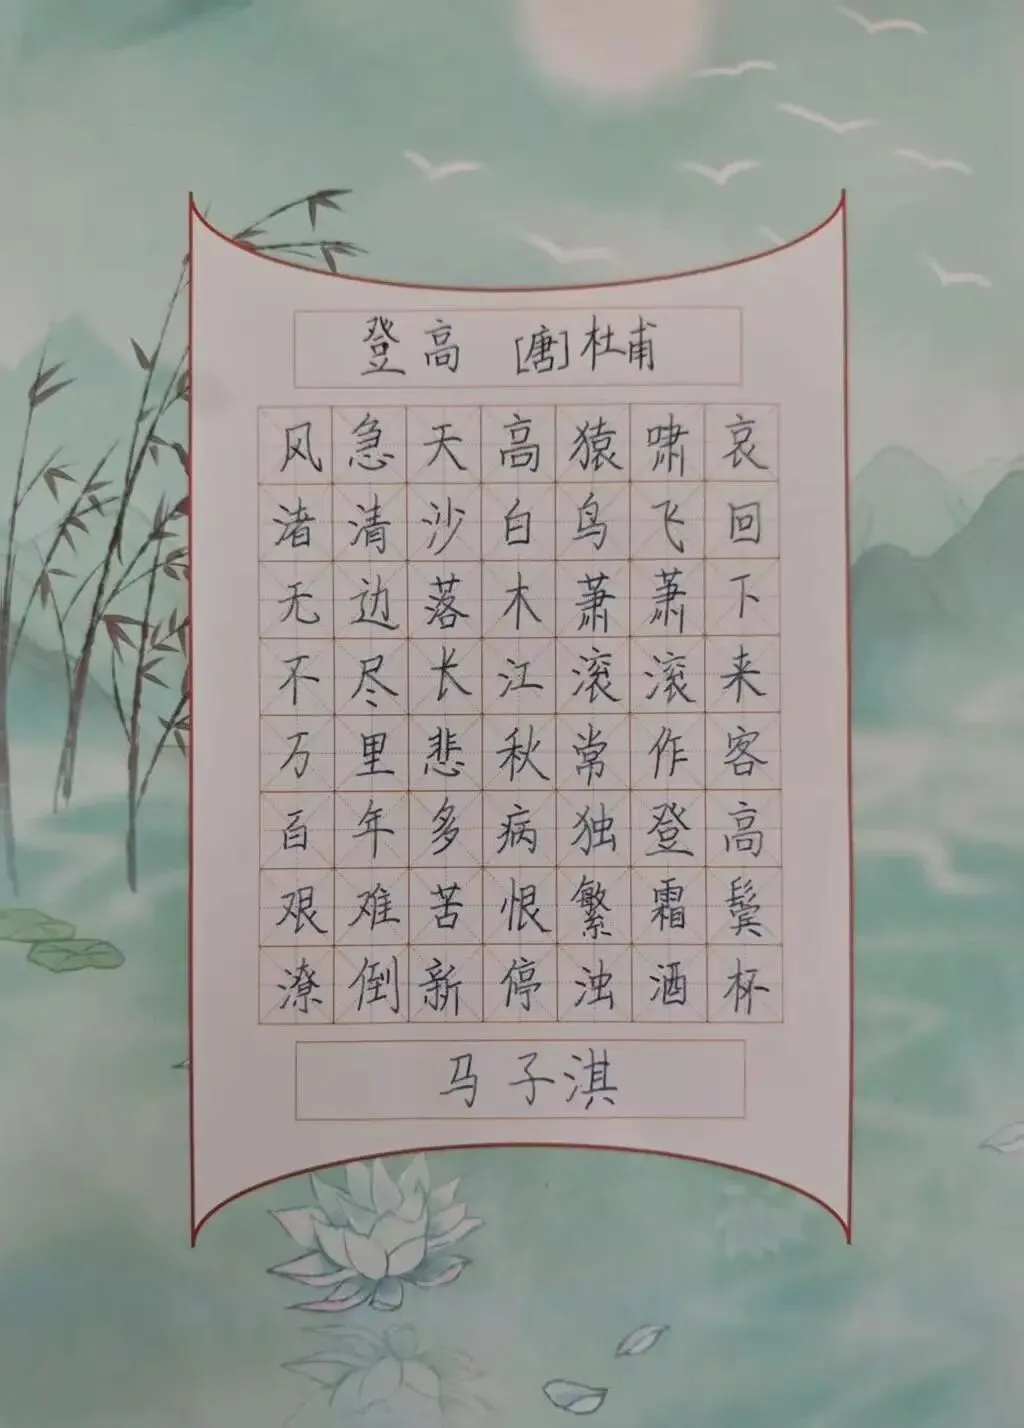 登高 [唐]杜甫
风急天高猿啸哀
渚清沙白鸟飞回
无边落木萧萧下
不尽长江滚滚来
万里悲秋常作客
百年多病独登高
艰难苦恨繁霜鬓
潦倒新停浊酒杯
马子淇